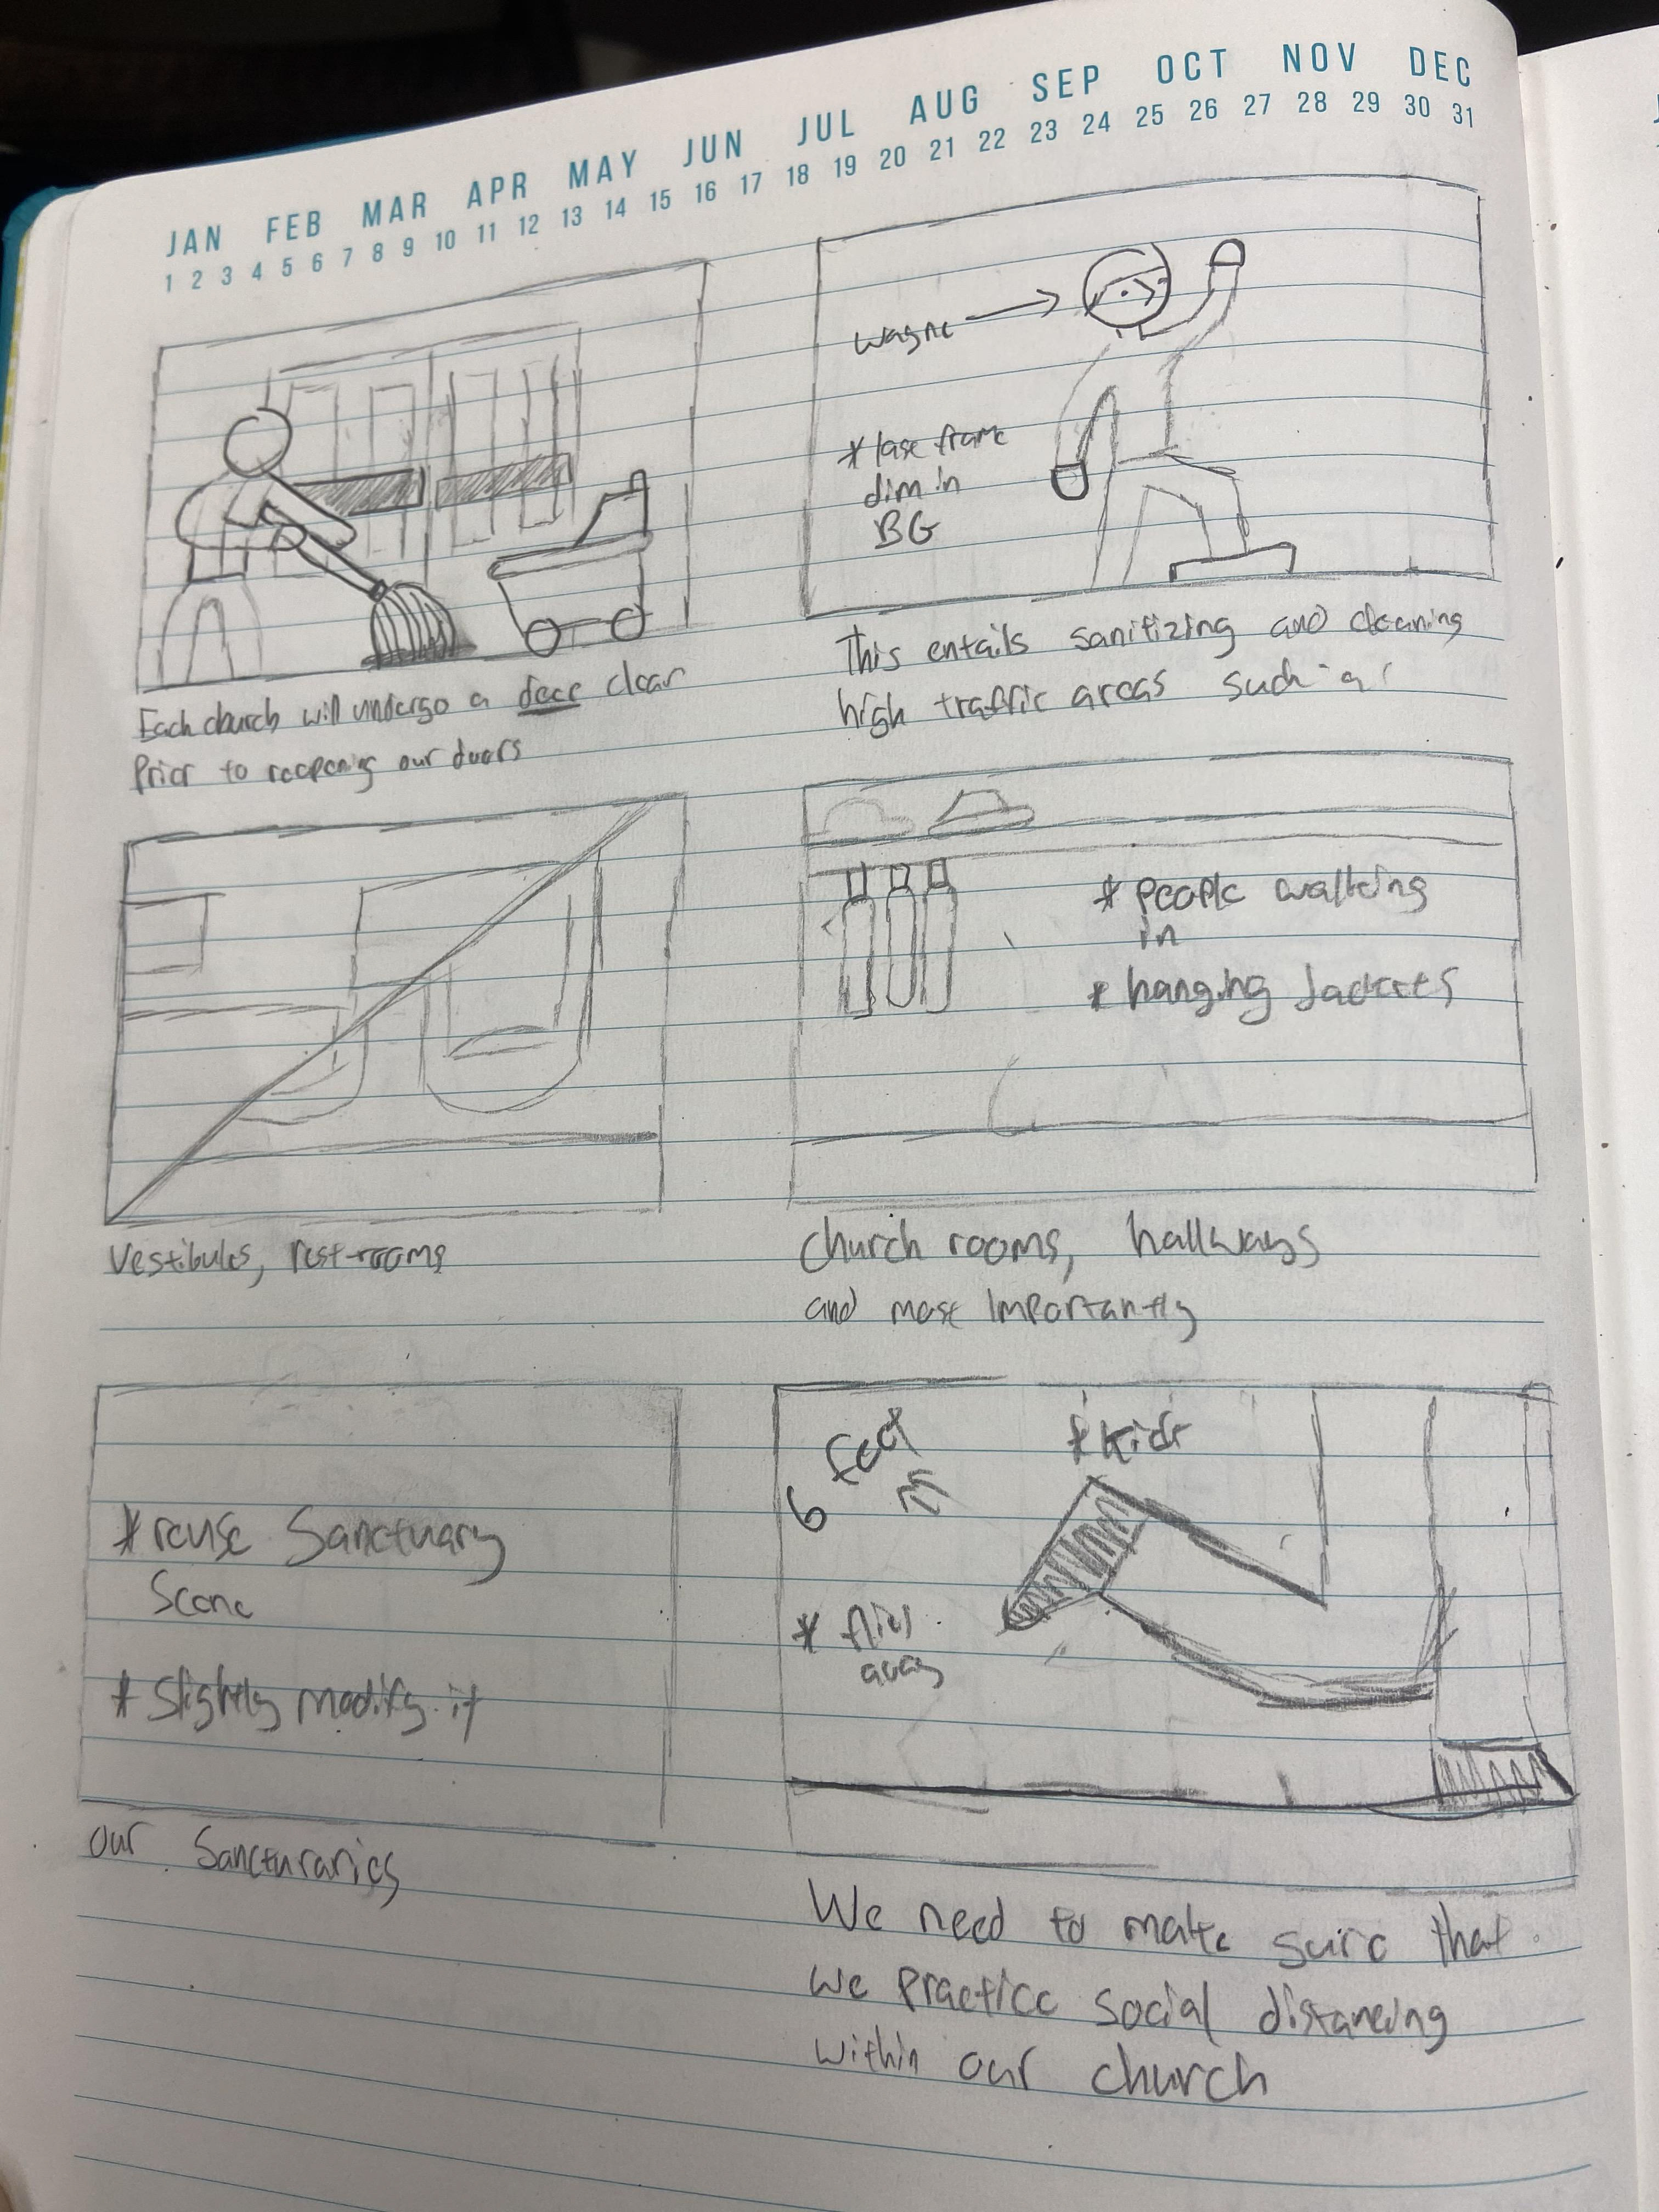 JAN FEB MAR APR MAY JUN JUL AUG SEP OCT NOV DEC
1 2 3 4 5 6 7 8 9 10 11 12 13 14 15 16 17 18 19 20 21 22 23 24 25 26 27 28 29 30 31
Each church will undergo a deep clean
Prior to reopening our doors
Wayne
* last frame
dim in
BG
This entails sanitizing and cleaning
high traffic areas such as
Vestibules, rest-rooms
* People walking
in
* hanging Jackets
Church rooms, hallways
and most importantly
* reuse Sanctuary
Scene
* Slightly modify it
our Sancturaries
6 feet
* Kids
* flies
away
We need to make sure that
we practice social distancing
within our church